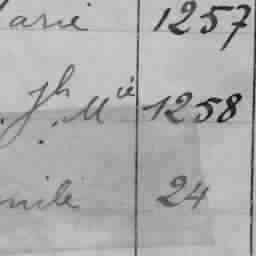 arie 1257
. Jh. Mie 1258
mile 24